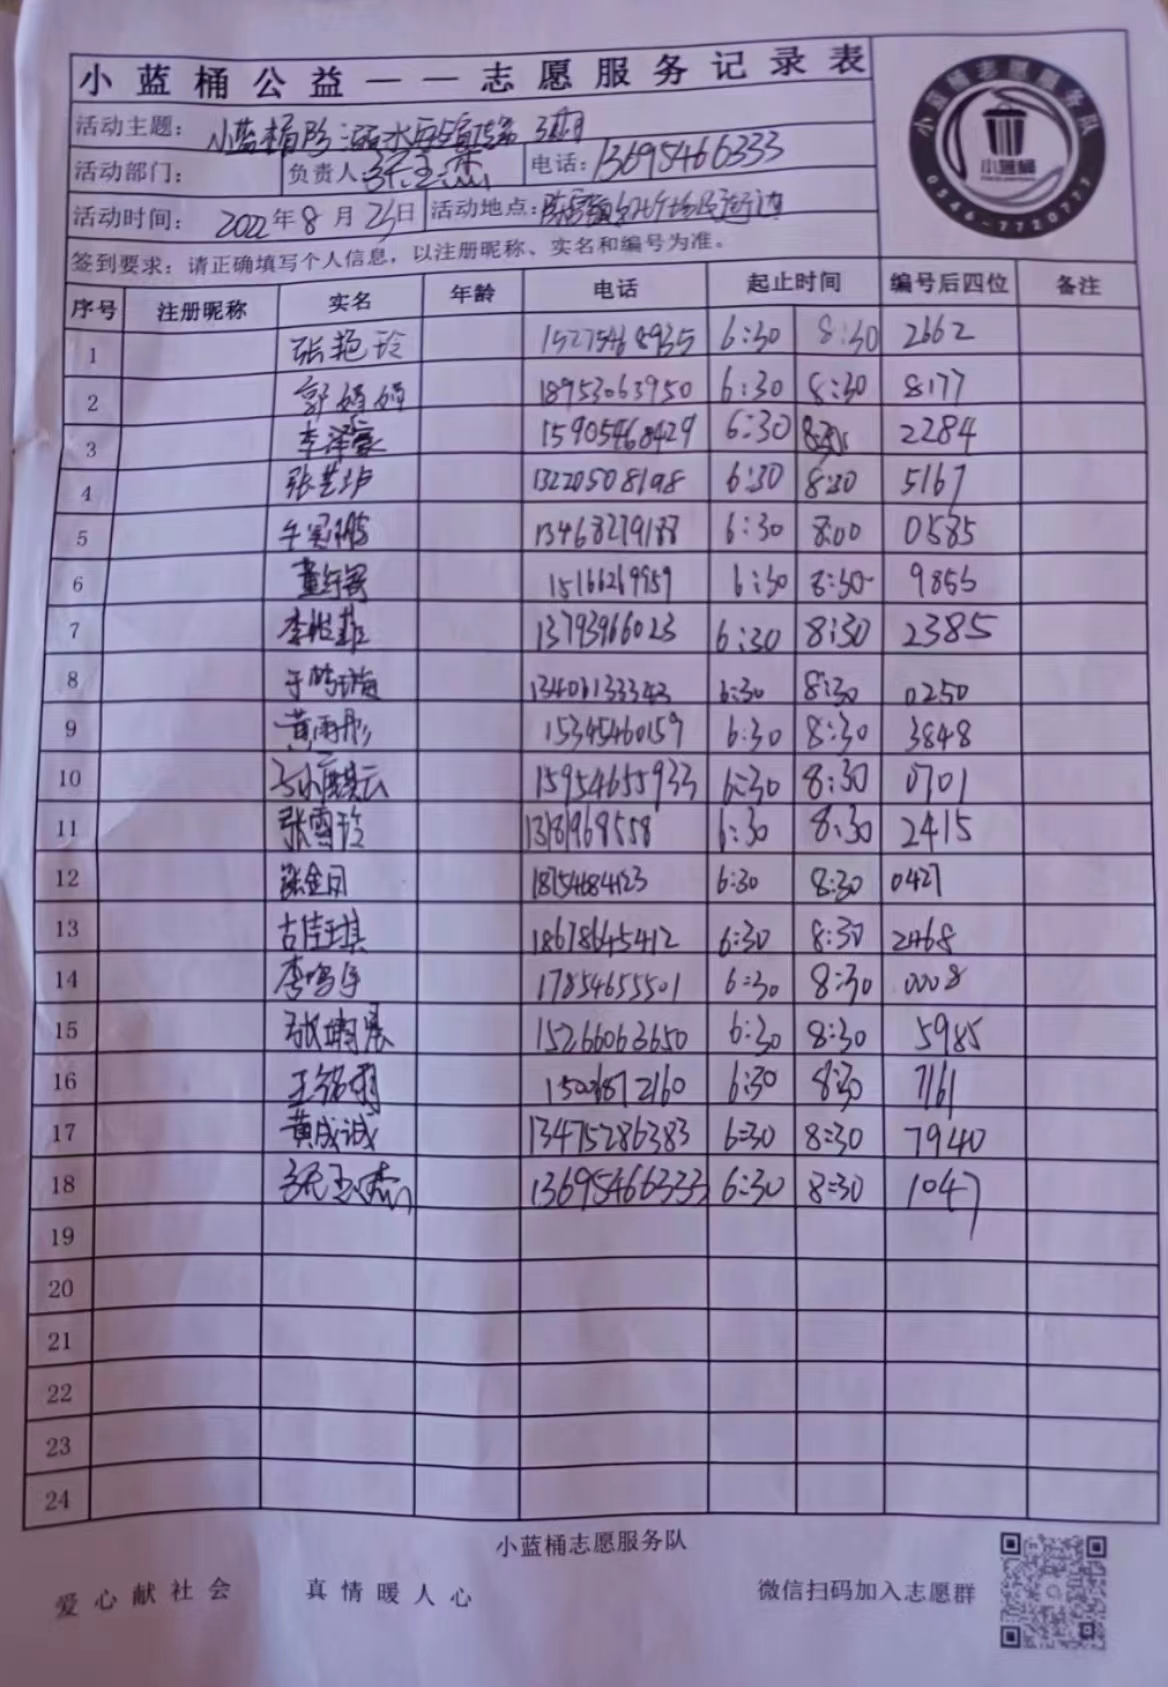 小蓝桶公益——志愿服务记录表
活动主题: 小蓝桶防溺水 宣传第 期
活动部门: 负责人: 张玉杰 电话: 13695466333
活动时间: 2022年8月 日 活动地点:
签到要求: 请正确填写个人信息, 以注册昵称、实名和编号为准。
序号 注册昵称 实名 年龄 电话 起止时间 编号后四位 备注
1 张艳玲 15275468935 6:30 8:30 2662
2 郭娟娟 18953063950 6:30 8:30 8177
3 李泽豪 15905468429 6:30 8:30 2284
4 张艺 13220508198 6:30 8:30 5167
5 13468279188 6:30 8:00 0585
6 董 15166269959 6:30 8:30 9855
7 李 菲 13793966023 6:30 8:30 2385
8 于 13406133343 6:30 8:30 0250
9 黄雨彤 15345460159 6:30 8:30 3848
10 15954655933 6:30 8:30 0701
11 张雪玲 6:30 8:30 2415
12 张金月 18754684123 6:30 8:30 0427
13 古佳琪 18678645412 6:30 8:30 2468
14 李鸣宇 17854655501 6:30 8:30 0008
15 张 晨 15266063650 6:30 8:30 5985
16 王 6:30 8:30 7161
17 黄成诚 13475286383 6:30 8:30 7940
18 张玉杰 13695466333 6:30 8:30 1047
19
20
21
22
23
24
小蓝桶志愿服务队
爱心献社会 真情暖人心 微信扫码加入志愿群
小蓝桶志愿服务队
小蓝桶
0546-7720777